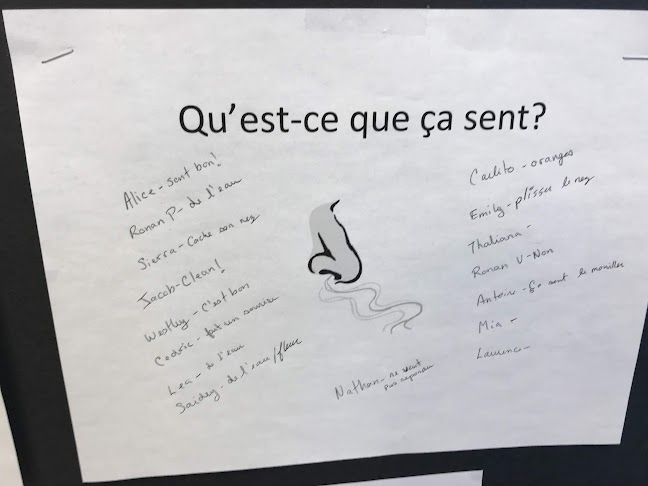 Qu'est-ce que ça sent?
Alice - sent bon!
Ronan P - de l'eau
Sierra - Cache son nez
Jacob - Clean!
Westley - C'est bon
Cedric - fait un sourire
Lea - de l'eau
de l'eau / fleur
Nathan - ne veut
pas répondre
- oranges
Emily - plisse le nez
Thaliana -
Ronan V - Non
Antoine - ça sent le
Mia -
Laurence -